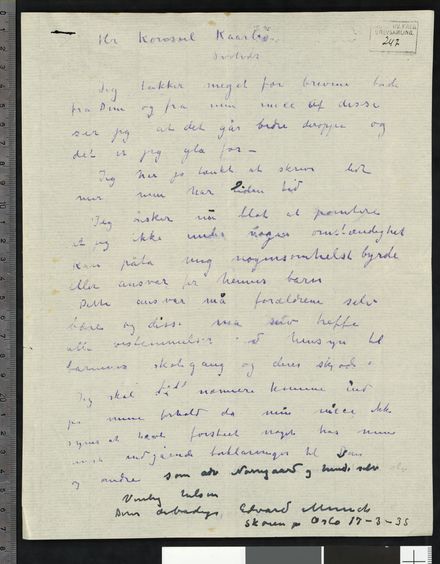 Hr Konsul Kaarbø
247
Jeg takker meget for brevene både
fra Dem og fra min niece Af disse
ser jeg at det går bedre deroppe og
det er jeg gla for —
Jeg har jo tænkt at skrive
mer men har liden tid
Jeg ønsker nu blot at pointere
at jeg ikke under nogen omstændighet
kan påta mig nogensomhelst byrde
eller ansvar for hennes barn
Dette ansvar må forældrene selv
bære og disse må selv treffe
alle bestemmelser hensyn til
barnets skolegang og deres
Jeg skal nærmere komme ind
på mine forhold da min niece ikke
synes at have forstået noget
indgående forklaringer til Dem
og andre som adv Nørregaard og hende selv
Venlig hilsen
Deres ærbødige Edvard Munch
Skøien pr Oslo 17-3-35